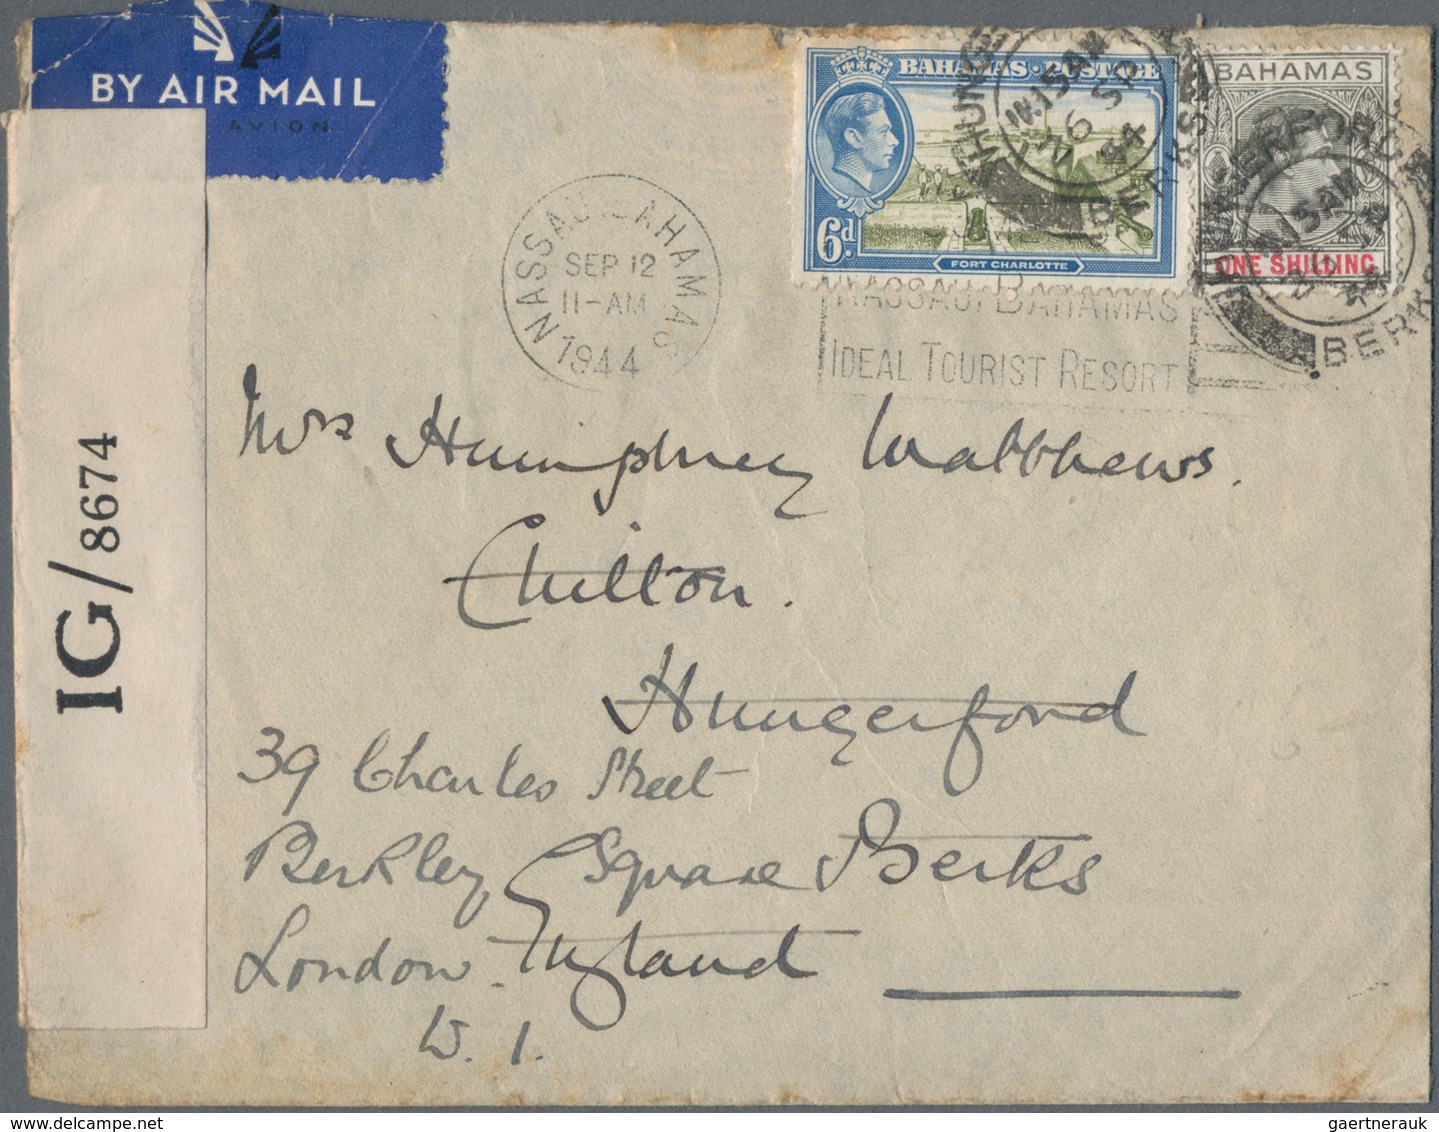 BY AIR MAIL
AVION
IG/8674
NASSAU BAHAMAS
SEP 12
11-AM
1944
BAHAMAS·POSTAGE
6d.
FORT CHARLOTTE
BAHAMAS
ONE SHILLING
11.15AM
26 SP
44
BERKS
HUNGERFORD
11.15AM
BERKS
NASSAU, BAHAMAS
IDEAL TOURIST RESORT
Mrs Humphrey Matthews.
Chilton.
Hungerford
Berks
England
39 Charles Street
Berkley Square
London.
W. 1.
gaertnerauk @ delcampe.net